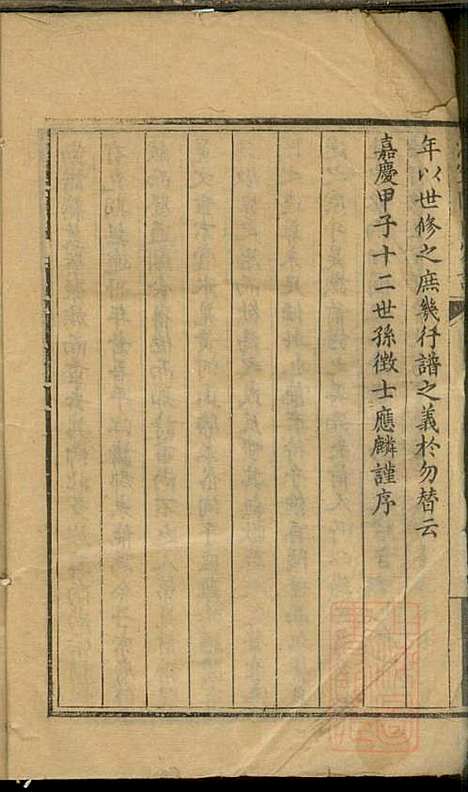 年以世修之庶幾行譜之義於勿替云
嘉慶甲子十二世孫徵士應麟謹序